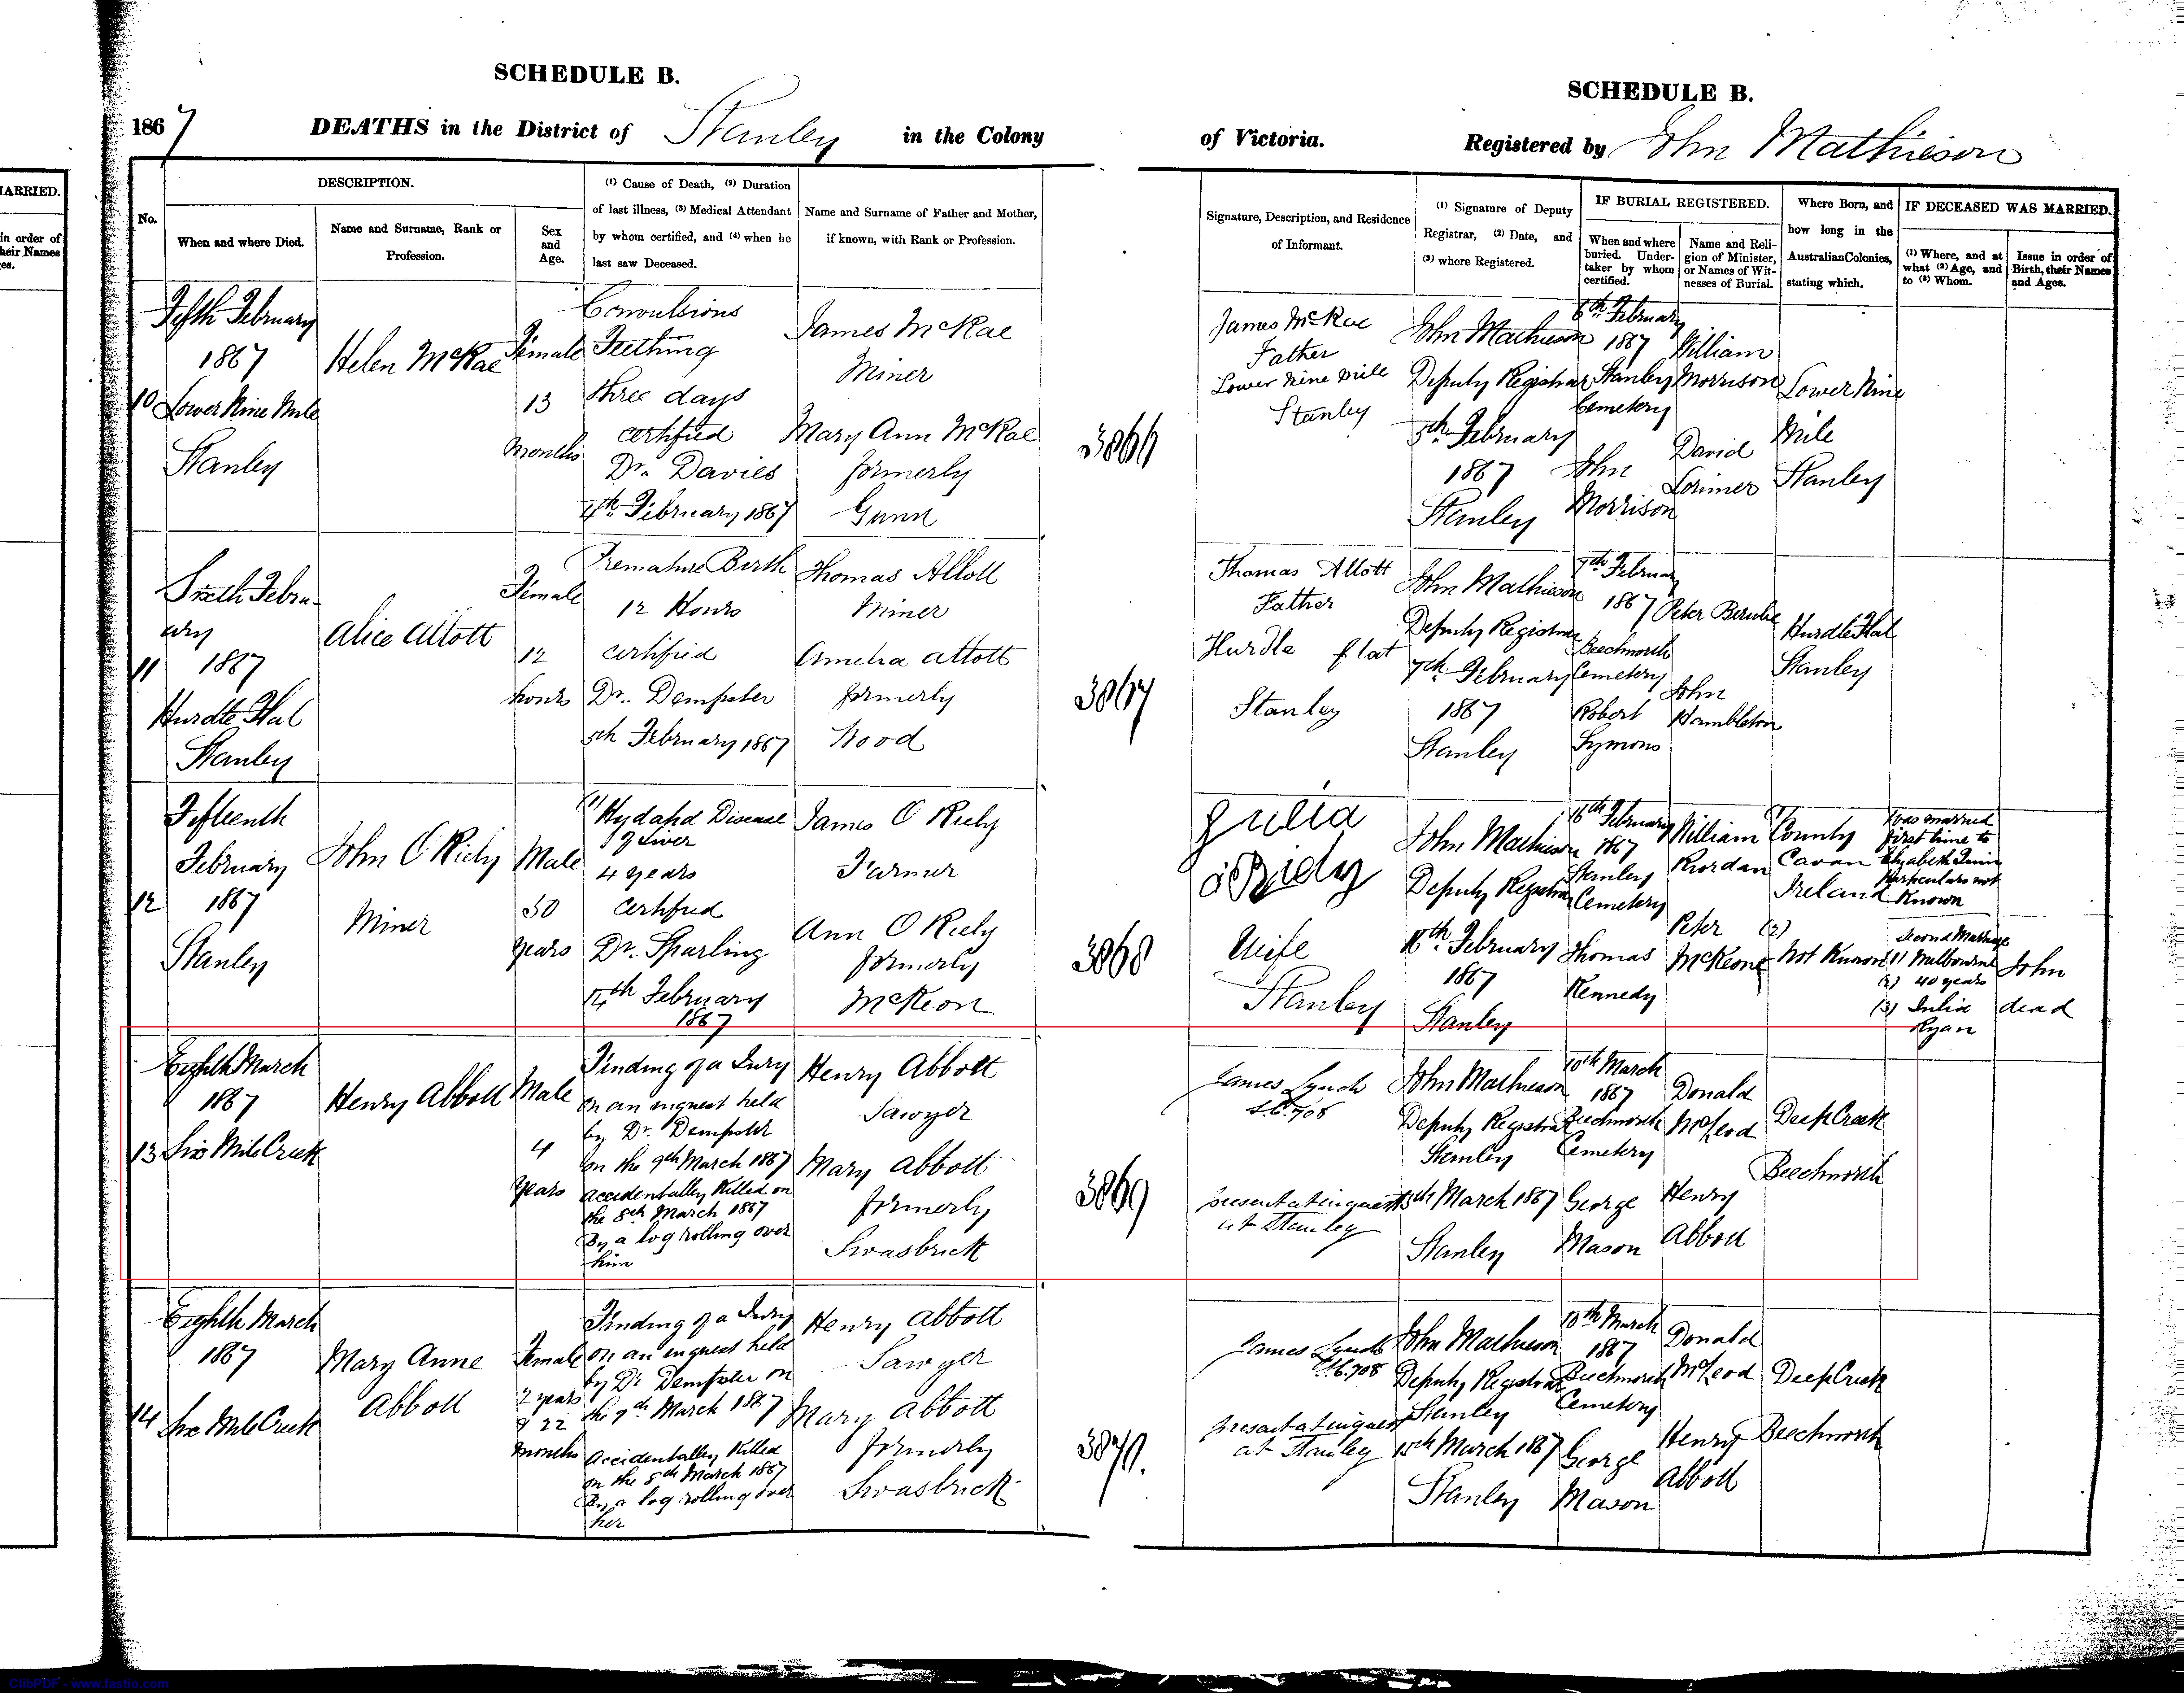 SCHEDULE B.
1867 DEATHS in the District of Stanley in the Colony
MARRIED.
in order of
their Names
es.
No.
DESCRIPTION.
When and where Died.
Name and Surname, Rank or
Profession.
Sex
and
Age.
(1) Cause of Death, (2) Duration
of last illness, (3) Medical Attendant
by whom certified, and (4) when he
last saw Deceased.
Name and Surname of Father and Mother,
if known, with Rank or Profession.
SCHEDULE B.
of Victoria. Registered by John Mathieson
Signature, Description, and Residence
of Informant.
(1) Signature of Deputy
Registrar, (2) Date, and
(3) where Registered.
IF BURIAL REGISTERED.
When and where
buried. Under-
taker by whom
certified.
Name and Reli-
gion of Minister,
or Names of Wit-
nesses of Burial.
Where Born, and
how long in the
Australian Colonies,
stating which.
IF DECEASED WAS MARRIED.
(1) Where, and at
what (2) Age, and
to (3) Whom.
Issue in order of
Birth, their Names
and Ages.
10
Fifth February
1867
Lower Nine Mile
Stanley
Helen McRae
Female
13
Months
Convulsions
Teething
three days
certified
Dr. Davies
4th February 1867
James McRae
Miner
Mary Ann McRae
formerly
Gunn
3866
James McRae
Father
Lower Nine Mile
Stanley
John Mathieson
Deputy Registrar
5th February
1867
Stanley
6th February
1867
Stanley
Cemetery
John
Morrison
William
Morrison
David
Lorimer
Lower Nine
Mile
Stanley
11
Sixth Febru-
ary
1867
Hurdle Flat
Stanley
Alice Allott
Female
12
hours
Premature Birth
12 Hours
certified
Dr. Dempster
5th February 1867
Thomas Allott
Miner
Amelia Allott
formerly
Wood
3867
Thomas Allott
Father
Hurdle flat
Stanley
John Mathieson
Deputy Registrar
7th February
1867
Stanley
7th February
1867
Beechworth
Cemetery
Robert
Symons
Peter
John
Hambleton
Hurdle Flat
Stanley
12
Fifteenth
February
1867
Stanley
John O Riely
Miner
Male
50
years
(1) Hydatid Disease
of Liver
4 years
certified
Dr. Sparling
14th February
1867
James O Riely
Farmer
Ann O Riely
formerly
McKeon
3868
Julia
Wife
Stanley
John Mathieson
Deputy Registrar
16th February
1867
Stanley
16th February
1867
Stanley
Cemetery
Thomas
Kennedy
William
Riordan
Peter
McKeone
County
Cavan
Ireland
(2)
Not Known
Was married
first time to
Elizabeth Quinn
Particulars not
Known
Second Marriage
(1) Melbourne
(2) 40 years
(3) Julia
Ryan
John
dead
13
Eighth March
1867
Six Mile Creek
Henry Abbott
Male
4
years
Finding of a Jury
on an inquest held
by Dr. Dempster
on the 9th March 1867
accidentally Killed on
the 8th March 1867
By a log rolling over
him
Henry Abbott
Sawyer
Mary Abbott
formerly
Swasbrick
3869
James Lynch
S.C. 708
present at inquest
at Stanley
John Mathieson
Deputy Registrar
Stanley
15th March 1867
Stanley
10th March
1867
Beechworth
Cemetery
George
Mason
Donald
McLeod
Henry
Abbott
Deep Creek
Beechworth
14
Eighth March
1867
Six Mile Creek
Mary Anne
Abbott
Female
2 years
& 22
months
Finding of a Jury
on an inquest held
by Dr Dempster on
the 9th March 1867
accidentally Killed
on the 8th March 1867
By a log rolling over
her
Henry Abbott
Sawyer
Mary Abbott
formerly
Swasbrick
3870.
James Lynch
S.C. 708
present at inquest
at Stanley
John Mathieson
Deputy Registrar
Stanley
15th March 1867
Stanley
10th March
1867
Beechworth
Cemetery
George
Mason
Donald
McLeod
Henry
Abbott
Deep Creek
Beechworth
GlibPDF - www.fastio.com